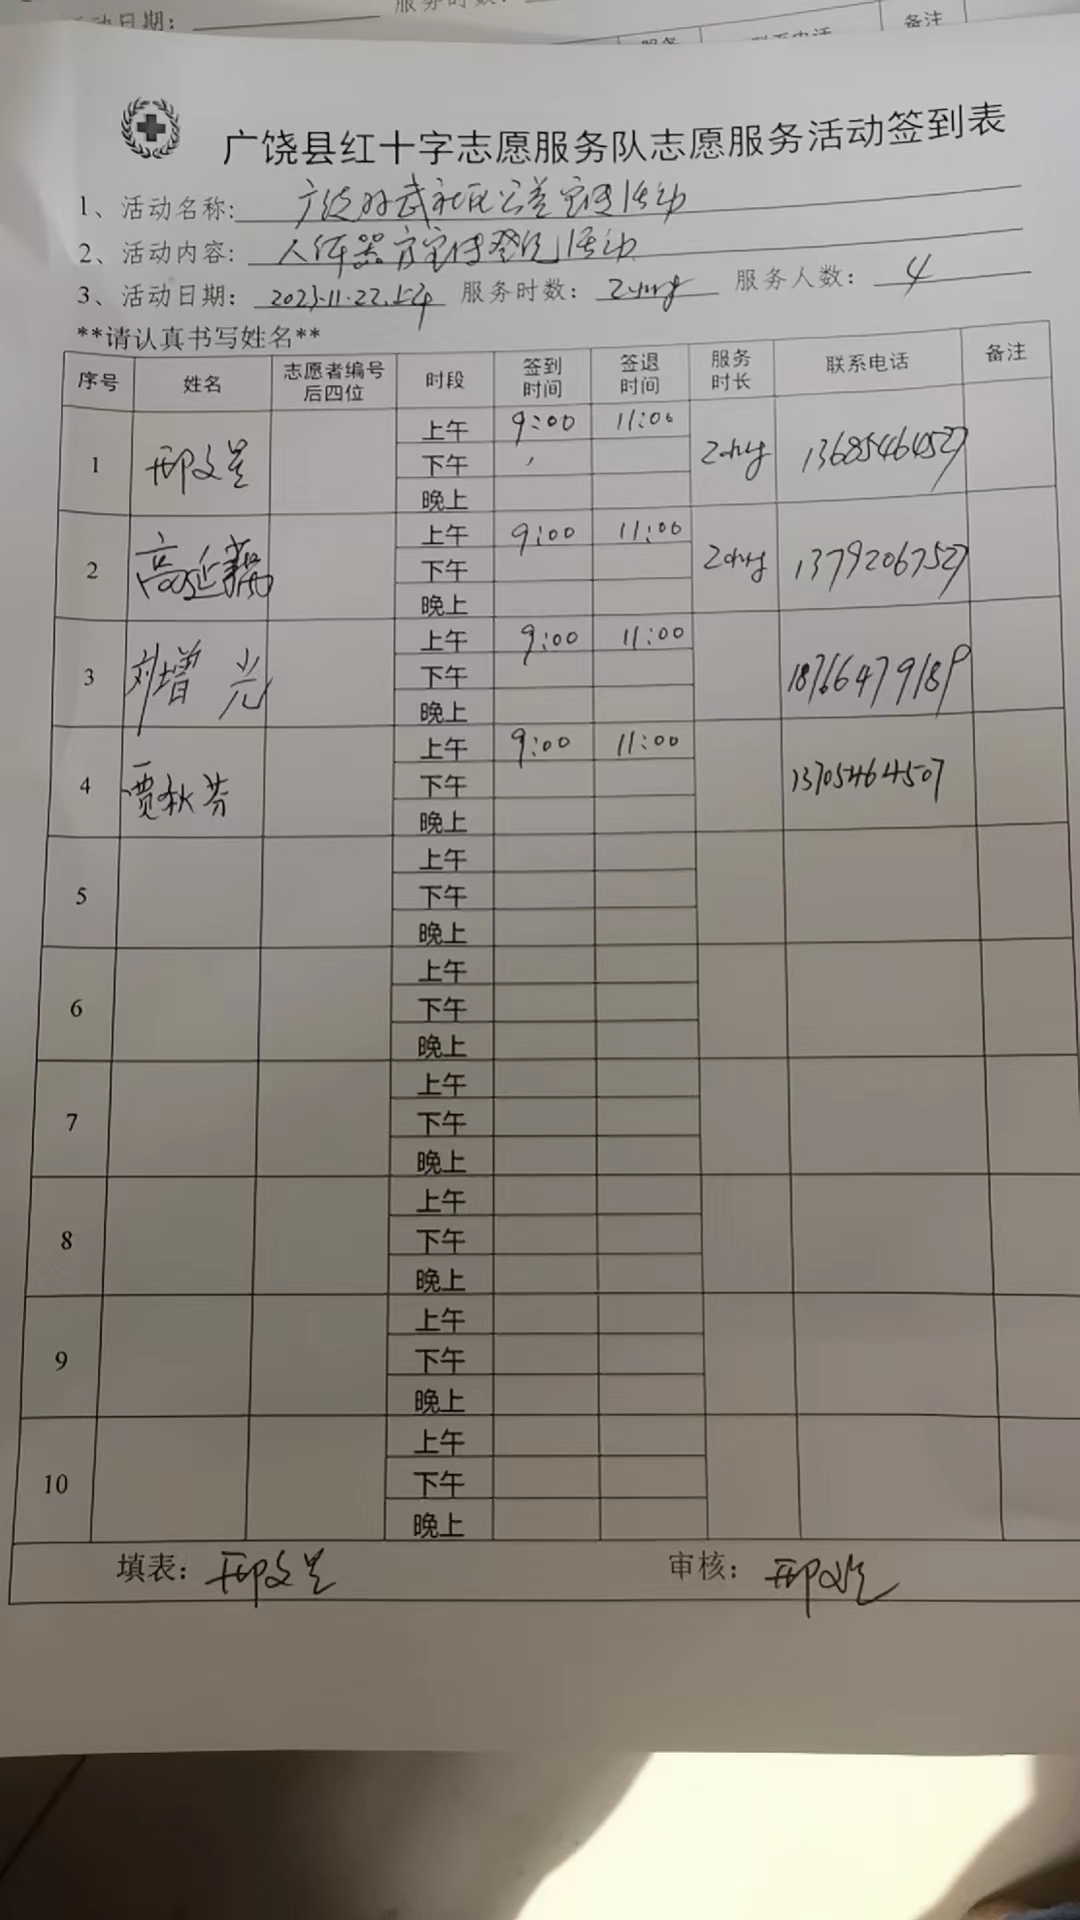 动日期：
服务时数：
服务
联系电话
备注
广饶县红十字志愿服务队志愿服务活动签到表
1、活动名称: 广饶孙武社区公益宣传活动
2、活动内容: 人体器官宣传登记活动
3、活动日期: 2023.11.22.上午 服务时数: 服务人数: 4
**请认真书写姓名**
序号 姓名 志愿者编号后四位 时段 签到时间 签退时间 服务时长 联系电话 备注
1 邢文星 上午 9:00 11:00 13685464527
下午
晚上
2 高延 上午 9:00 11:00 13792067527
下午
晚上
3 刘增光 上午 9:00 11:00 18766479189
下午
晚上
4 贾秋芬 上午 9:00 11:00 13705464507
下午
晚上
5 上午
下午
晚上
6 上午
下午
晚上
7 上午
下午
晚上
8 上午
下午
晚上
9 上午
下午
晚上
10 上午
下午
晚上
填表: 邢文星 审核: 邢文星